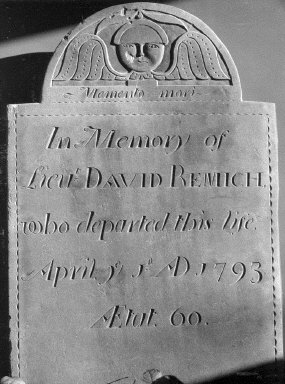 Memento mori
In Memory of
Lieut DAVID REMICH,
who departed this life
April yͤ 1ˢᵗ AD. 1793
Ætat. 60.